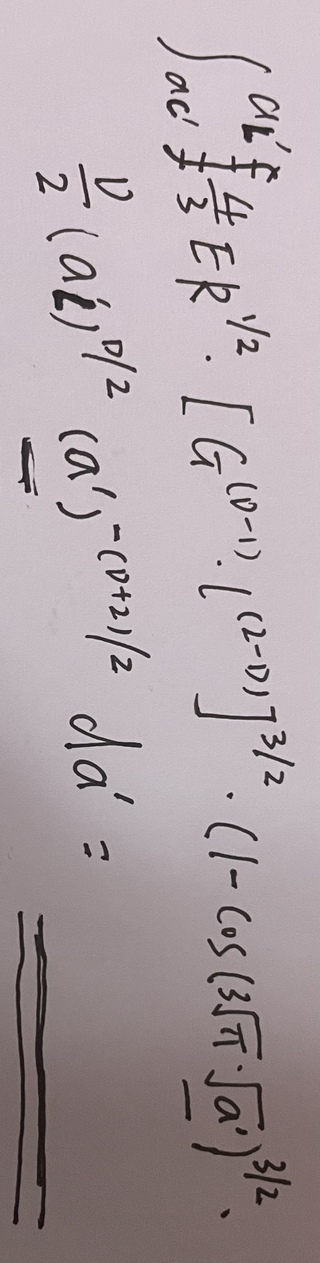 ∫_{ac'}^{aL'} 4/3 E R^{1/2} · [G^{(D-1)} · l^{(2-D)}]^{3/2} · (1-cos(3√π · √a')^{3/2} ·
D/2 (aL')^{D/2} (a')^{-(D+2)/2} da' =